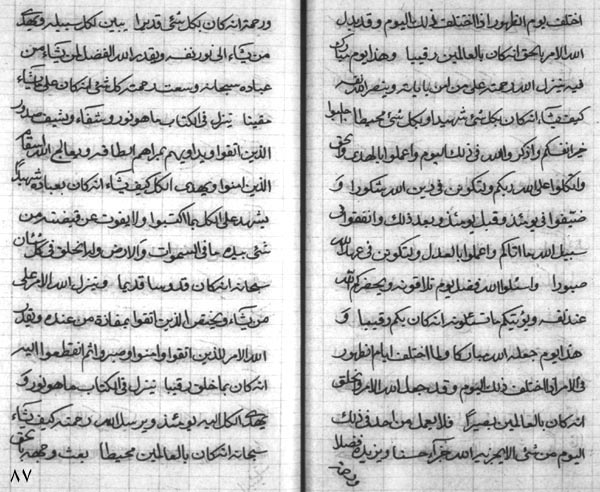 اختلف يوم الظهور اذا اختلف في ذلك اليوم وقد نزل
الله الامر بالحق انه كان بالعالمين رقيبا وهذا يوم مبارك
فيه ينزل الله رحمته على من امن باياته وينصر الله نفسه
كيف يشاء انه كان بكل شئ شهيدا وبكل شئ محيطا
خيرا نفسكم واذكروا الله في ذلك اليوم واعملوا بالهدى والحق
وتوكلوا على الله ربكم ولتكونن في دين الله شكورا و
في يومئذ وقبل يومئذ وبعد ذلك وانفقوا في
سبيل الله ما اتاكم واعملوا بالعدل ولتكونن في عهد الله
صبورا واسئلوا الله وفضله يوم تلاقونه ويحضركم الله
عند نفسه ويؤتيكم ما تسئلونه انه كان بكم رقيبا و
هذا يوم جعله الله مباركا ولما اختلف ايام الظهور
في الامر اذا اختلف ذلك اليوم وقد جعل الله الامر والخلق
انه كان بالعالمين بصيرا فلا يعمل من احد في ذلك
اليوم من شئ الا يجزيه الله جزاء حسنا ويزيده فضلا
ورحمة انه كان بكل شئ قديرا يبين لكل سبيله ويهدي
من يشاء الى نور نفسه ويقدر الله الفضل لمن يشاء من
عباده سبحانه وسعت رحمته كل شئ انه كان على ما يشاء
مقيتا ينزل في الكتاب ما هو نور وشفاء ويشف صدور
الذين اتقوا ويداويهم بمراهم الطافه ويعالج الله
الذين امنوا ويهدى الكل كيف يشاء انه كان بعباده شهيدا
يشهد على الكل بما اكتسبوا ولا يفوت عن قبضته من
شئ بيده ما في السموات والارض وله الخلق في كل شان
سبحانه انه كان قدوسا قديما وينزل الله الامر على
من يشاء ويختص الذين اتقوا بمفازة من عنده ويقدر
الله الامر للذين اتقوا وامنوا وصبروا ثم انقطعوا اليه
انه كان بما خلق رقيبا ينزل في الكتاب ما هو نور و
يهدي الكل اليه يومئذ ويرسل الله رحمته كيف يشاء
سبحانه انه كان بالعالمين محيطا
٨٧